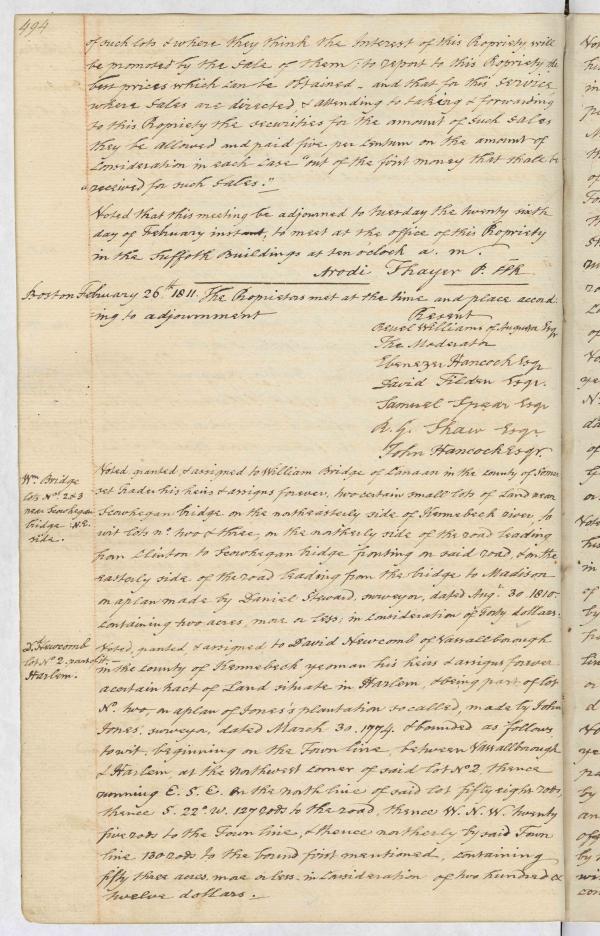 494
of such lots & where they think the Interest of this Propriety will
be promoted by the sale of them; to report to this Propriety the
best prices which can be obtained – and that for this service
where sales are directed, & attending to taking & forwarding
to this Propriety the securities for the amount of such sales
they be allowed and paid five per centum on the amount of
Consideration in each case "out of the first money that shall be
"received for such sales."
Voted that this meeting be adjourned to tuesday the twenty sixth
day of Febuary instant, to meet at the office of this Propriety
in the Suffolk Buildings at ten o'clock a. m.
Arodi Thayer P. Clk
Boston Febuary 26th 1811. The Proprietors met at the time and place accord-
ing to adjournment
Present
Reuel Williams of Augusta Esqr
The Moderator
Ebenezer Hancock Esqr
David Tilden Esqr.
Samuel Spear Esqr
R. G. Shaw Esqr
John Hancock Esqr.
Wm Bridge
lots Nos. 2 & 3
near Scowhegan
bridge N.E.
side.
Voted, granted, & assigned to William Bridge of Canaan in the county of Somer-
set trader his heirs & assigns forever, two certain small lots of Land near
Scowhegan bridge on the northeasterly side of Kennebeck river, to
wit lots no. two & three, on the northerly side of the road leading
from Clinton to Scowhegan bridge fronting on said road, & on the
easterly side of the road leading from the bridge to Madison
on a plan made by Daniel Steward, surveyor, dated Aug. 30 1810–
containing two acres, more or less; in consideration of Forty dollars.
Dd. Newcomb
lot No 2. part of it.–
Harlem.
Voted, granted & assigned to David Newcomb of Vassallborough
in the county of Kennebeck yeoman his heirs & assigns forever
a certain tract of Land situate in Harlem, & being part of lot
No. two, on a plan of Jones's plantation so called, made by John
Jones, surveyor, dated March 30. 1774. & bounded as follows
to wit, beginning on the Town line, between Vassallborough
& Harlem, at the northwest corner of said lot No 2, thence
running E. S. E. on the north line of said lot fifty eight rods,
thence S. 22°. W. 127 rods to the road, thence W. N. W. twenty
five rods to the Town line, & thence northerly by said Town
line 130 rods to the bound first mentioned, containing
fifty three acres, more or less. in Consideration of two hundred &
twelve dollars.